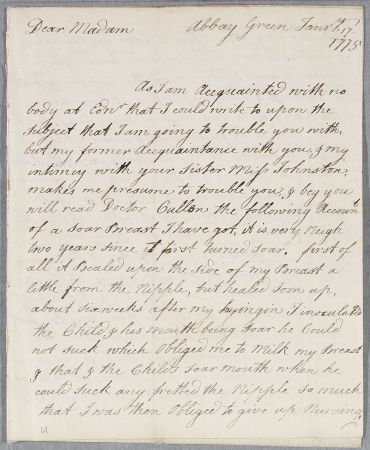 Dear Madam Abbay Green Janry 17
1775
As I am Acquainted with no
body at Ednr that I could write to upon the
Subject that I am going to trouble you with,
but my former Acquaintance with you, & my
intimcy with your Sister Miss Johnston,
makes me presume to trouble you, & beg you
will read Doctor Cullon the following Account
of a Soar Breast I have got, it is very neigh
two years since it first turned Soar. first of
all it Bealed upon the Side of my Breast a
little from the Nipple, but Healed Soon up,
about six weeks after my Lyingin I inoculated
the Child, & his mouth being Soar he Could
not Suck which Obliged me to Milk my Breast
& that & the Childs Soar mouth when he
could Suck any fretted the Nipple so much
that I was then Obliged to give up Nursing,